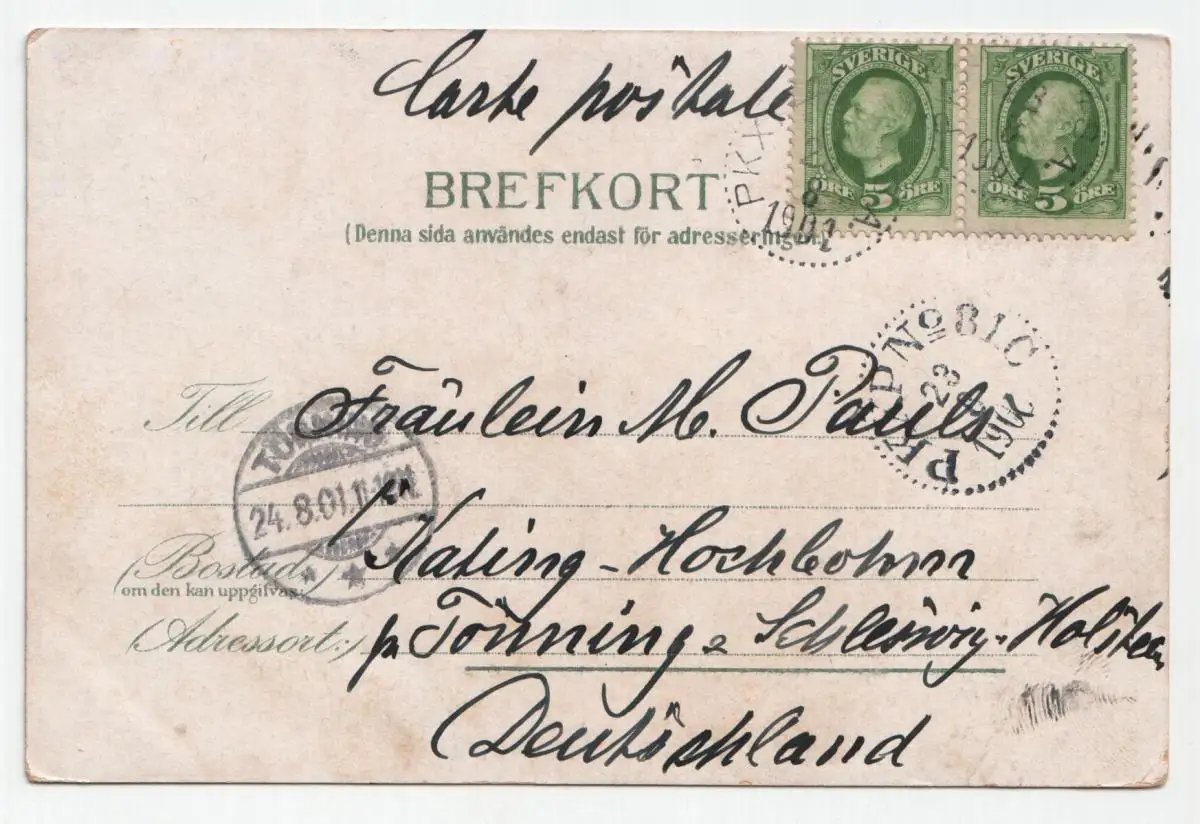 Carte postale
SVERIGE
5 ÖRE ÖRE
SVERIGE
ÖRE 5 ÖRE
BREFKORT
(Denna sida användes endast för adresseringen.)
PKX
8
1901
A.
1901
A.
PKXP No 81 C
23
8
1901
Till Fräulein M. Pauls
24.8.01.11-12N.
in
Kating-Hochbohm
(Bostad:)
om den kan uppgifvas:
(Adressort:) pr Tönning Schleswig-Holstein
Deutschland